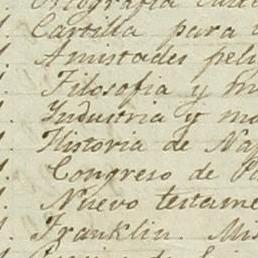 Ortografia
Cartilla para
Amistades peli
Filosofia y m
Industria y mo
Historia de Na
Congreso de Pa
Nuevo testame
Franklin. Mis